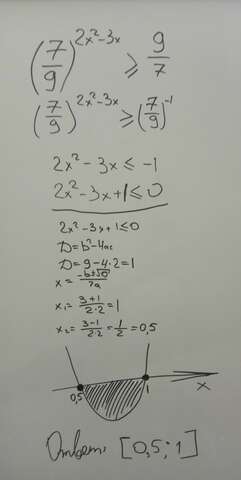 (7/9)^(2x²-3x) ≥ 9/7
(7/9)^(2x²-3x) ≥ (7/9)^(-1)
2x² - 3x ≤ -1
2x² - 3x + 1 ≤ 0
2x² - 3x + 1 ≤ 0
D = b² - 4ac
D = 9 - 4·2 = 1
x = (-b±√D)/2a
x₁ = (3+1)/(2·2) = 1
x₂ = (3-1)/(2·2) = 1/2 = 0,5
0,5 1 x
Ответ: [0,5; 1]